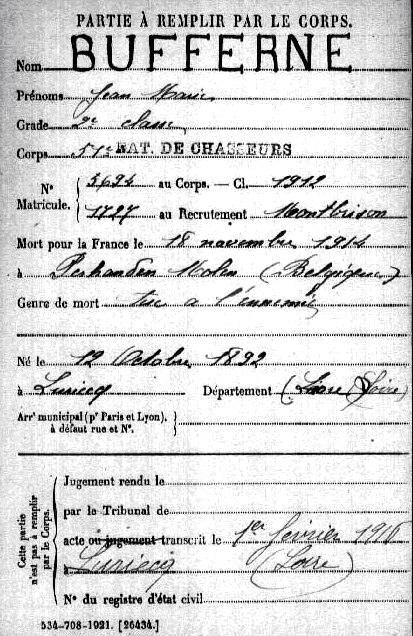 PARTIE À REMPLIR PAR LE CORPS.
Nom BUFFERNE
Prénoms Jean Marie
Grade 2e classe
Corps 51e BAT. DE CHASSEURS
N° Matricule. 3694 au Corps. — Cl. 1912
1727 au Recrutement Montbrison
Mort pour la France le 18 novembre 1914
à Molen (Belgique)
Genre de mort tué a l'ennemi
Né le 12 Octobre 1892
à Luriecq Département (Loire)
Arrt municipal (pr Paris et Lyon),
à défaut rue et N°.
Cette partie n'est pas à remplir par le Corps.
Jugement rendu le
par le Tribunal de
acte ou jugement transcrit le 1er février 1916
à Luriecq (Loire)
N° du registre d'état civil
534-708-1921. [26434.]